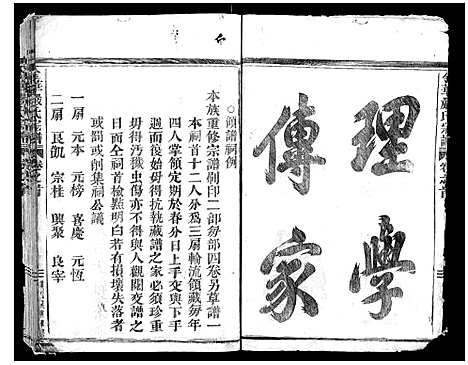 理學
傳家
○頒譜祠例
本族重修宗譜刷印二部每部四卷另草譜一
本祠首十二人分為三扇輪流領藏每年
四人掌領定期於春分日上手交與下手
週而復始毋得抗執藏譜之家必須珍重
毋得汚穢虫傷亦不得與人觀閱交譜之
日面全祠首檢點明白若有損壞失落者
或罰或削集祠公議
一扇 元本 元榜 喜慶 元恆
二扇 艮凱 宗桂 興聚 良宰